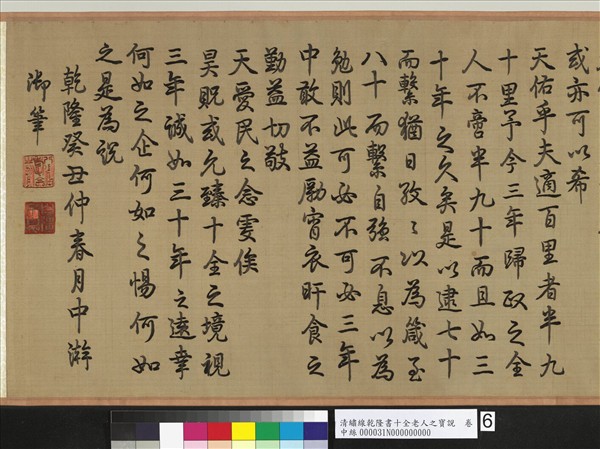 或亦可以希
天佑乎夫適百里者半九
十里予今三年歸政之全
人不啻半九十而且如三
十年之久矣是以逮七十
而繫猶日孜〻以為箴至
八十而繫自強不息以為
勉則此可必不可必三年
中敢不益勵宵衣旰食之
勤益切敬
天愛民之念虔俟
昊貺或允臻十全之境視
三年誠如三十年之遠幸
何如之企何如之惕何如
之是為說
乾隆癸丑仲春月中澣
御筆
清繡線乾隆書十全老人之寶說 卷
中絲 000031N000000000
6